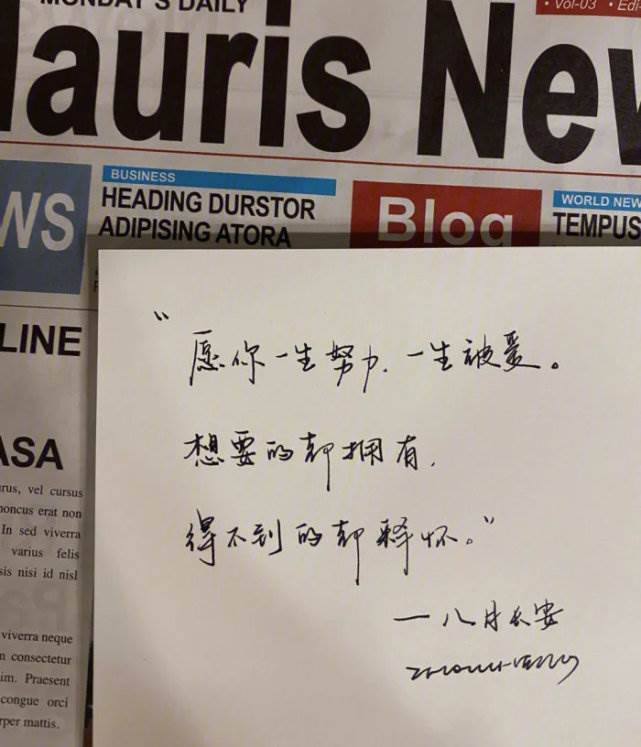 MONDAY'S DAILY
Vol-03 • Edi
auris New
WS
BUSINESS
HEADING DURSTOR
ADIPISING ATORA
Blog
WORLD NEW
TEMPUS
LINE
ASA
rus, vel cursus
honcus erat non
In sed viverra
varius felis
sis nisi id nisl
viverra neque
n consectetur
im. Praesent
congue orci
rper mattis.
“愿你一生努力,一生被爱。
想要的都拥有,
得不到的都释怀。”
—八月长安